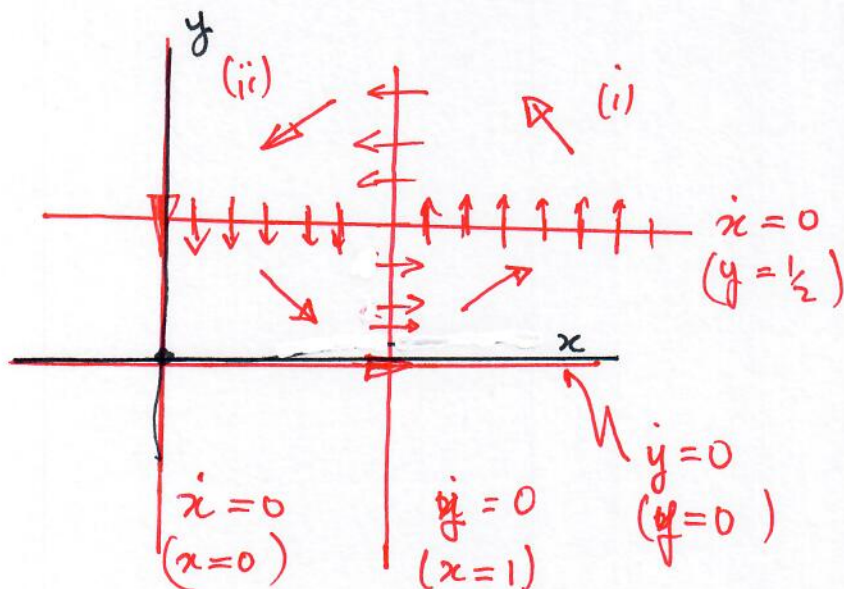 y
(ii)
(i)
ẋ = 0
(y = 1/2)
x
ẏ = 0
(y = 0)
ẋ = 0
(x = 0)
ẏ = 0
(x = 1)